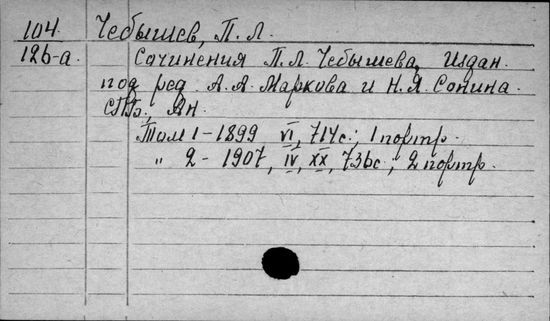 104. Чебышев, П. Л.
12b-а. Сочинения П. Л. Чебышева. Издан.
под ред. А. А. Маркова и Н. Я. Сонина.
СПБ., Ан.
Том 1-1899 VI, 714с.; 1 портр.
„ 2-1907, IV, XX, 736с., 2 портр.